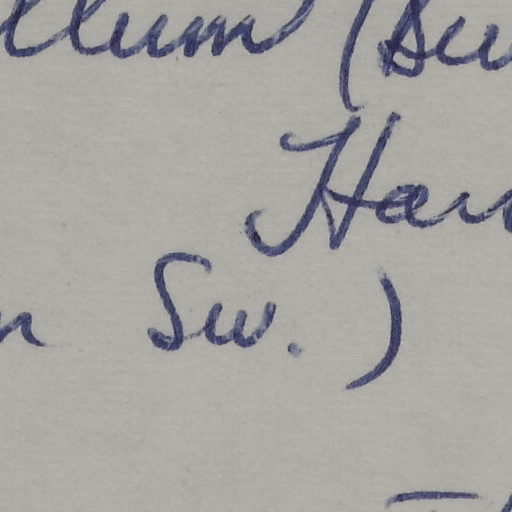 llum (Sw
Han
n Sw.)